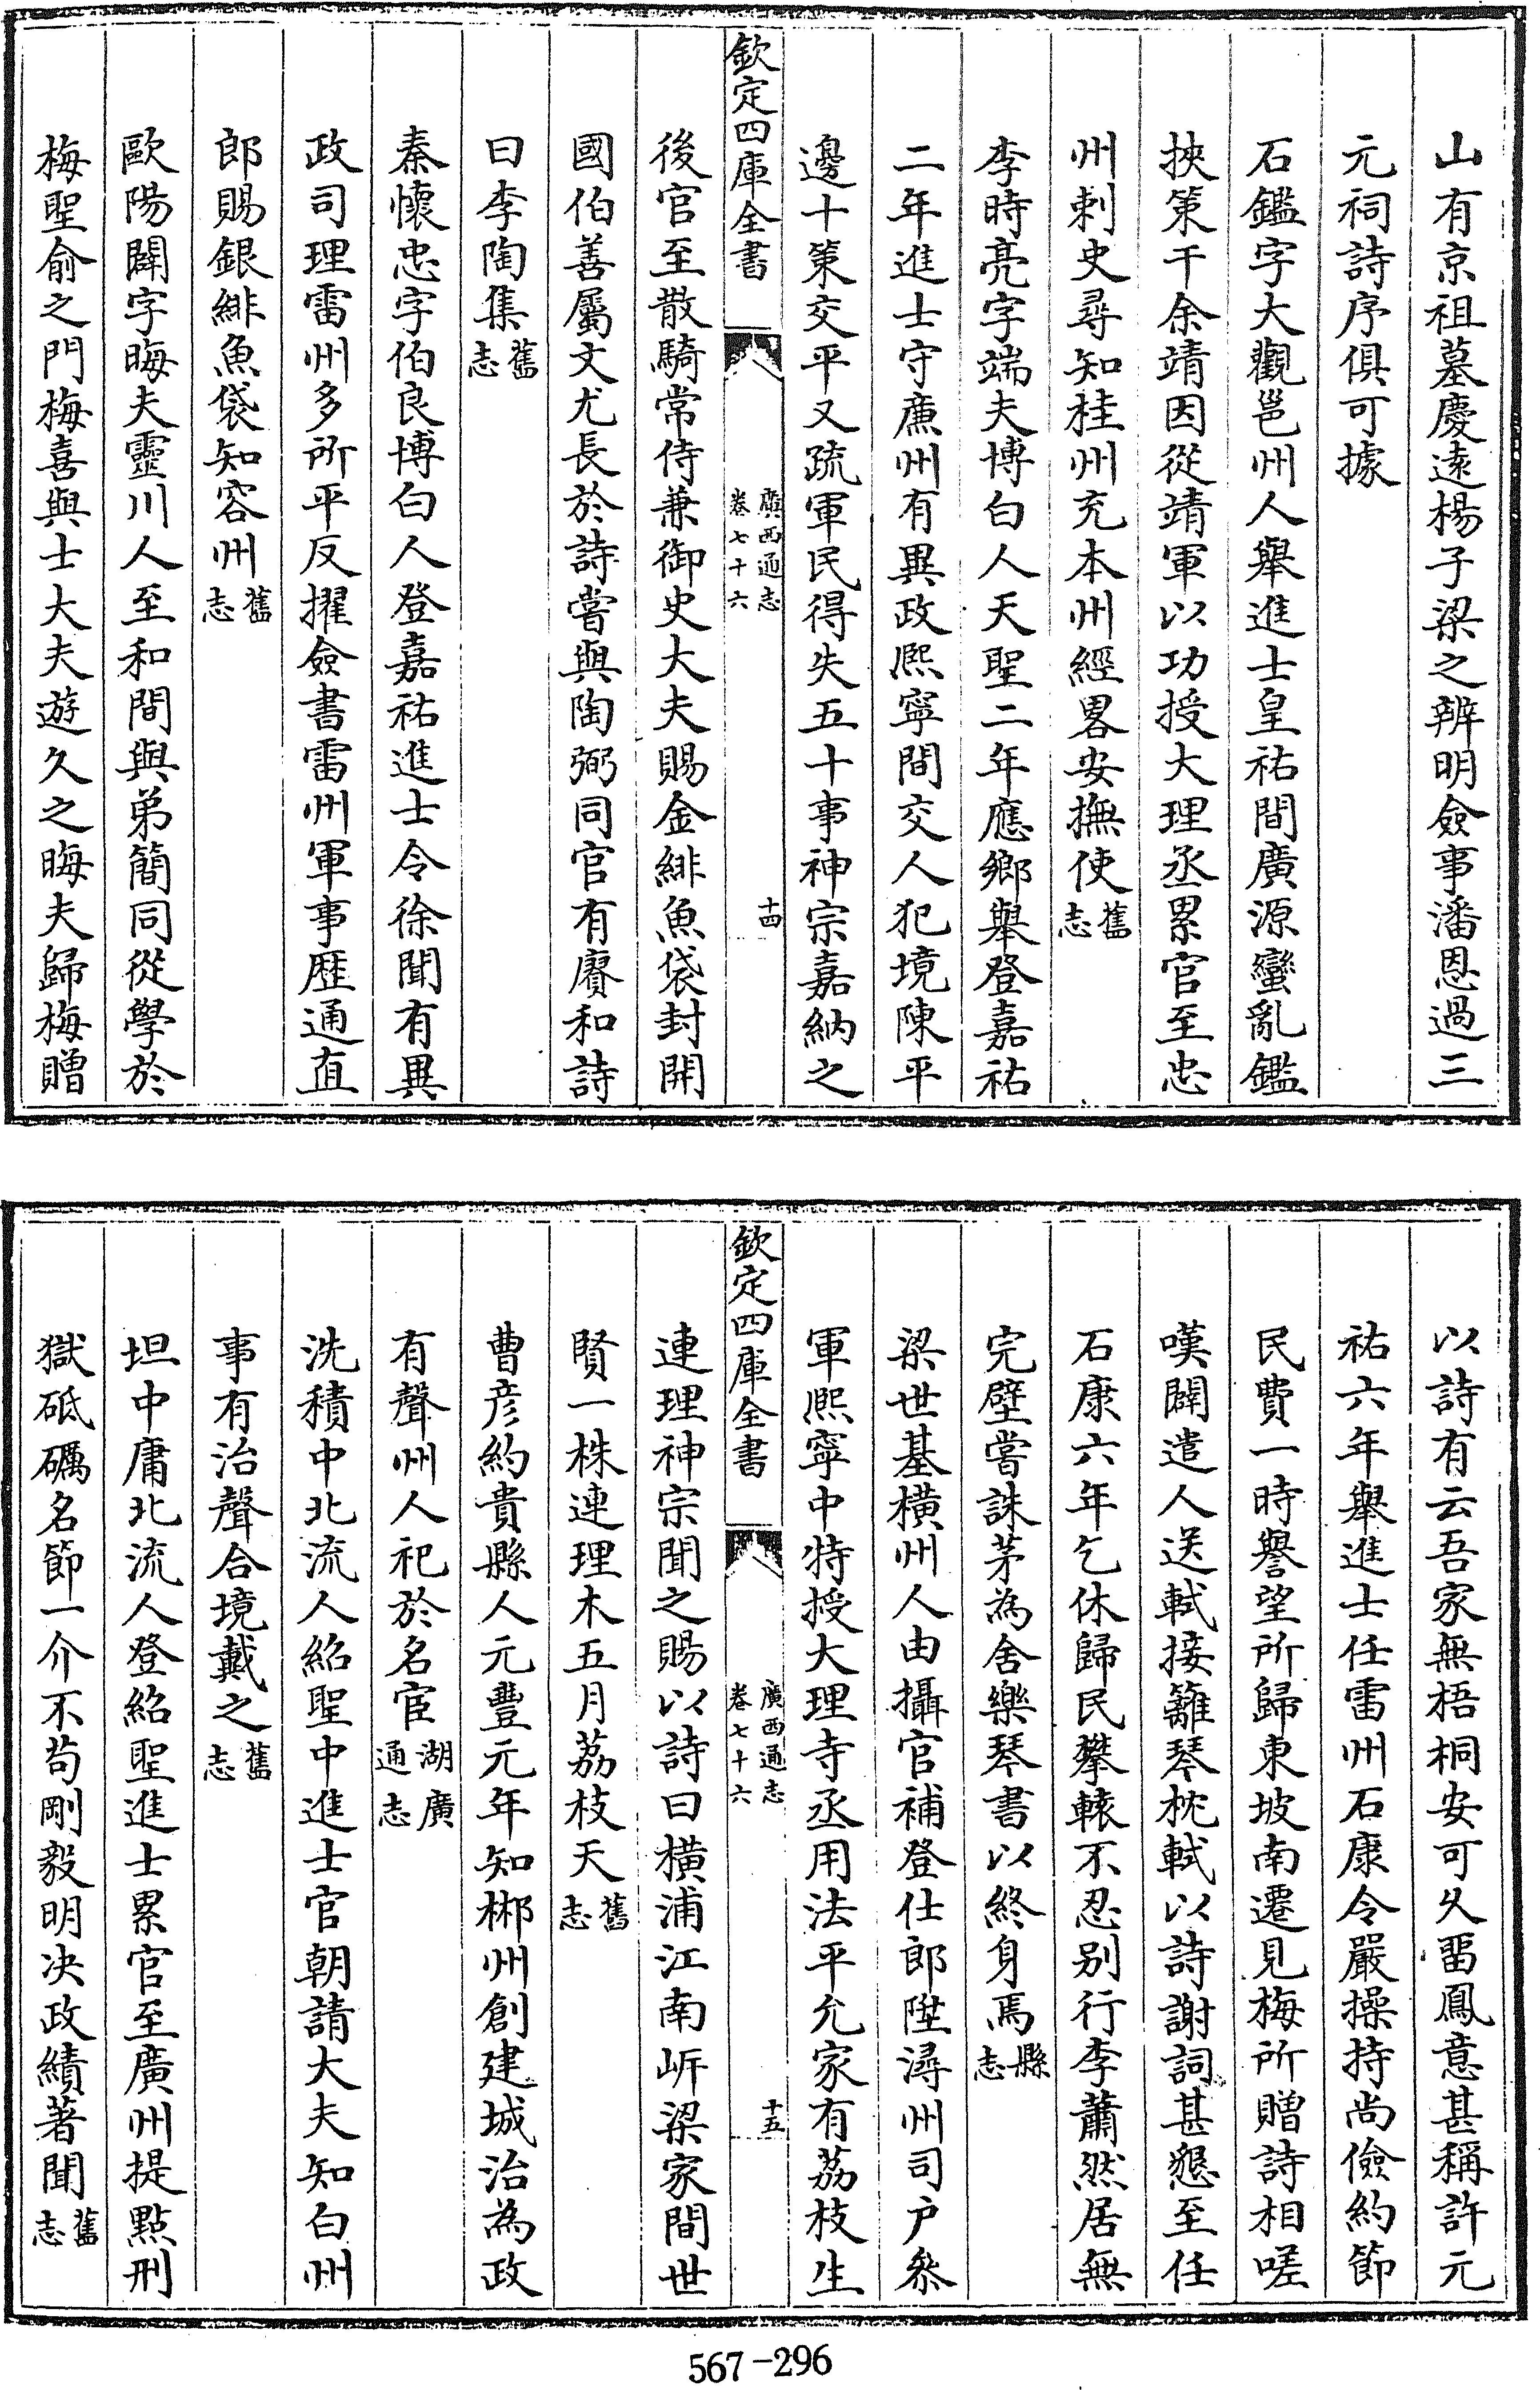 山有京祖墓慶遠楊子梁之辨明僉事潘恩過三
元祠詩序俱可據
石鑑字大觀邕州人舉進士皇祐間廣源蠻亂鑑
挾策干余靖因從靖軍以功授大理丞累官至忠
州刺史尋知桂州充本州經畧安撫使舊志
李時亮字端夫博白人天聖二年應鄉舉登嘉祐
二年進士守亷州有異政熈寧間交人犯境陳平
邊十策交平又疏軍民得失五十事神宗嘉納之
欽定四庫全書
廣西通志
卷七十六
十四
後官至散騎常侍兼御史大夫賜金緋魚袋封開
國伯善屬文尤長於詩嘗與陶弼同官有賡和詩
曰李陶集舊志
秦懷忠字伯良博白人登嘉祐進士令徐聞有異
政司理雷州多所平反擢僉書雷州軍事歴通直
郎賜銀緋魚袋知容州舊志
歐陽闢字晦夫靈川人至和間與弟簡同從學於
梅聖俞之門梅喜與士大夫遊久之晦夫歸梅贈
以詩有云吾家無梧桐安可久畱鳳意甚稱許元
祐六年舉進士任雷州石康令嚴操持尚儉約節
民費一時譽望所歸東坡南遷見梅所贈詩相嗟
嘆闢遣人送軾接籬琴枕軾以詩謝詞甚懇至任
石康六年乞休歸民攀轅不忍别行李蕭然居無
完壁嘗誅茅為舍樂琴書以終身焉縣志
梁世基横州人由攝官補登仕郎陞潯州司户叅
軍熈寧中特授大理寺丞用法平允家有荔枝生
欽定四庫全書
廣西通志
卷七十六
十五
連理神宗聞之賜以詩曰横浦江南㟁梁家間世
賢一株連理木五月荔枝天舊志
曹彦約貴縣人元豐元年知郴州創建城治為政
有聲州人祀於名宦湖廣通志
洗積中北流人紹聖中進士官朝請大夫知白州
事有治聲合境戴之舊志
坦中庸北流人登紹聖進士累官至廣州提㸃刑
獄砥礪名節一介不苟剛毅明决政績著聞舊志
567-296